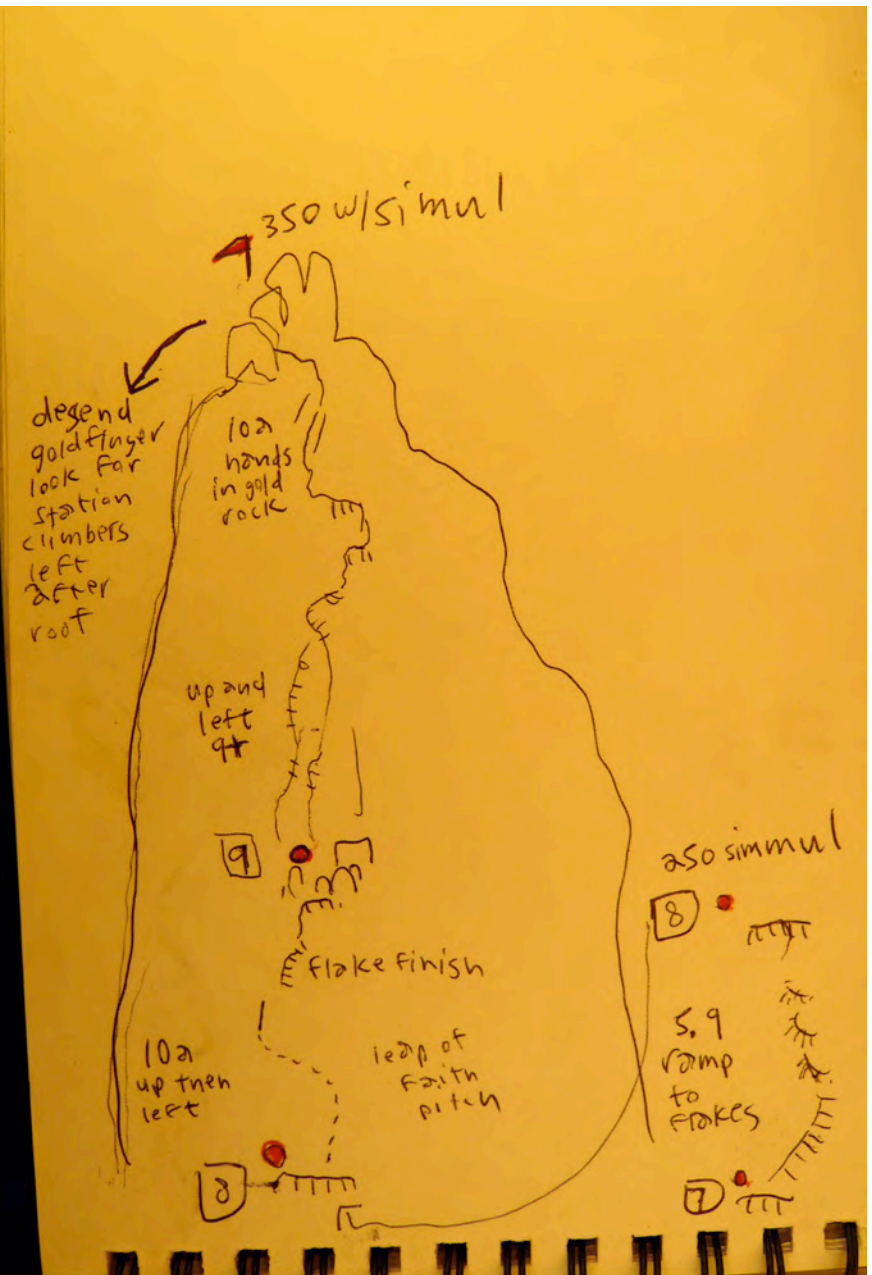 350 w/simul
desend
goldfinger
look for
station
climbers
left
after
roof
10a
hands
in gold
rock
up and
left
9+
9
250 simmul
8
flake finish
5.9
ramp
to
flakes
10a
up then
left
leap of
faith
pitch
8
7